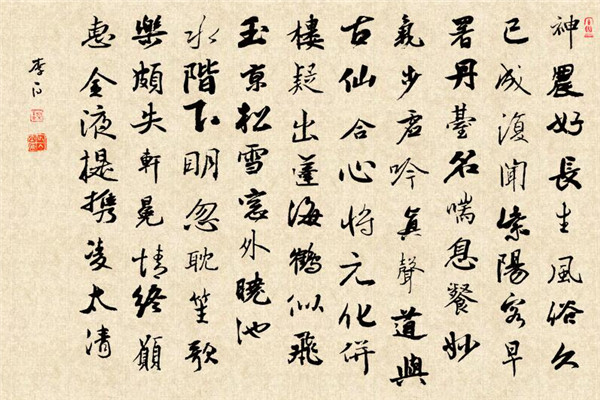 神農好長生風俗久
已成復聞紫陽客早
署丹臺名喘息餐妙
氣步虛吟真聲道與
古仙合心將元化併
樓疑出蓬海鶴似飛
玉京松雪窓外曉池
水階下明忽耽笙歌
樂頗失軒冕情終願
惠金液提携凌太清
李白